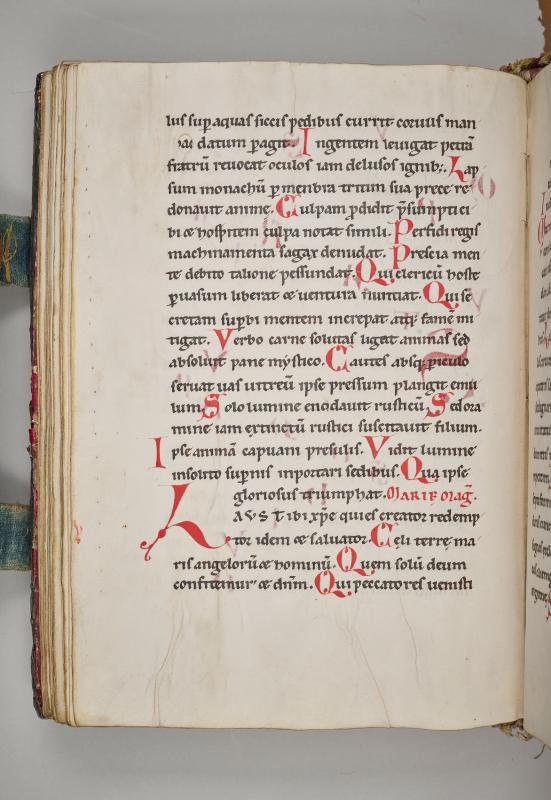 lus sup aquas siccis pedibus currit coruus man
datum pagit. Ingentem leuigat petrā
fratrū reuocat oculos iam delusos ignib;. Lap
sum monachū p menbra tritum sua prece re
donauit anime. Culpam pdidit psumpti ci
bi & hospitem culpa notat simili. Perfidi regis
machinamenta sagax denudat. Prescia men
te debito talione pessundat. Qui clericū hoste
puasum liberat & uentura nuntiat. Qui se
cretam supbi mentem increpat atq; famē mi
tigat. Verbo carne solutas ligat animas sed
absoluit pane mystico. Cautes absq; piculo
seruat uas uitreū ipse pressum plangit emu
lum. Solo lumine encidauit rusticū. Sed ora
mine iam extinctū rustici suscitauit filium.
Ipse animā capuani presulis. Vidit lumine
insolito supnis inportari sedibus. Qua ipse
gloriosus triumphat. MARIĘ MAG.
LAUS Tibi xpe qui es creator redemp
tor idem & saluator. Cęli terrę ma
ris angelorū & hominū. Quem solū deum
confitemur & dnm. Qui peccatores uenisti